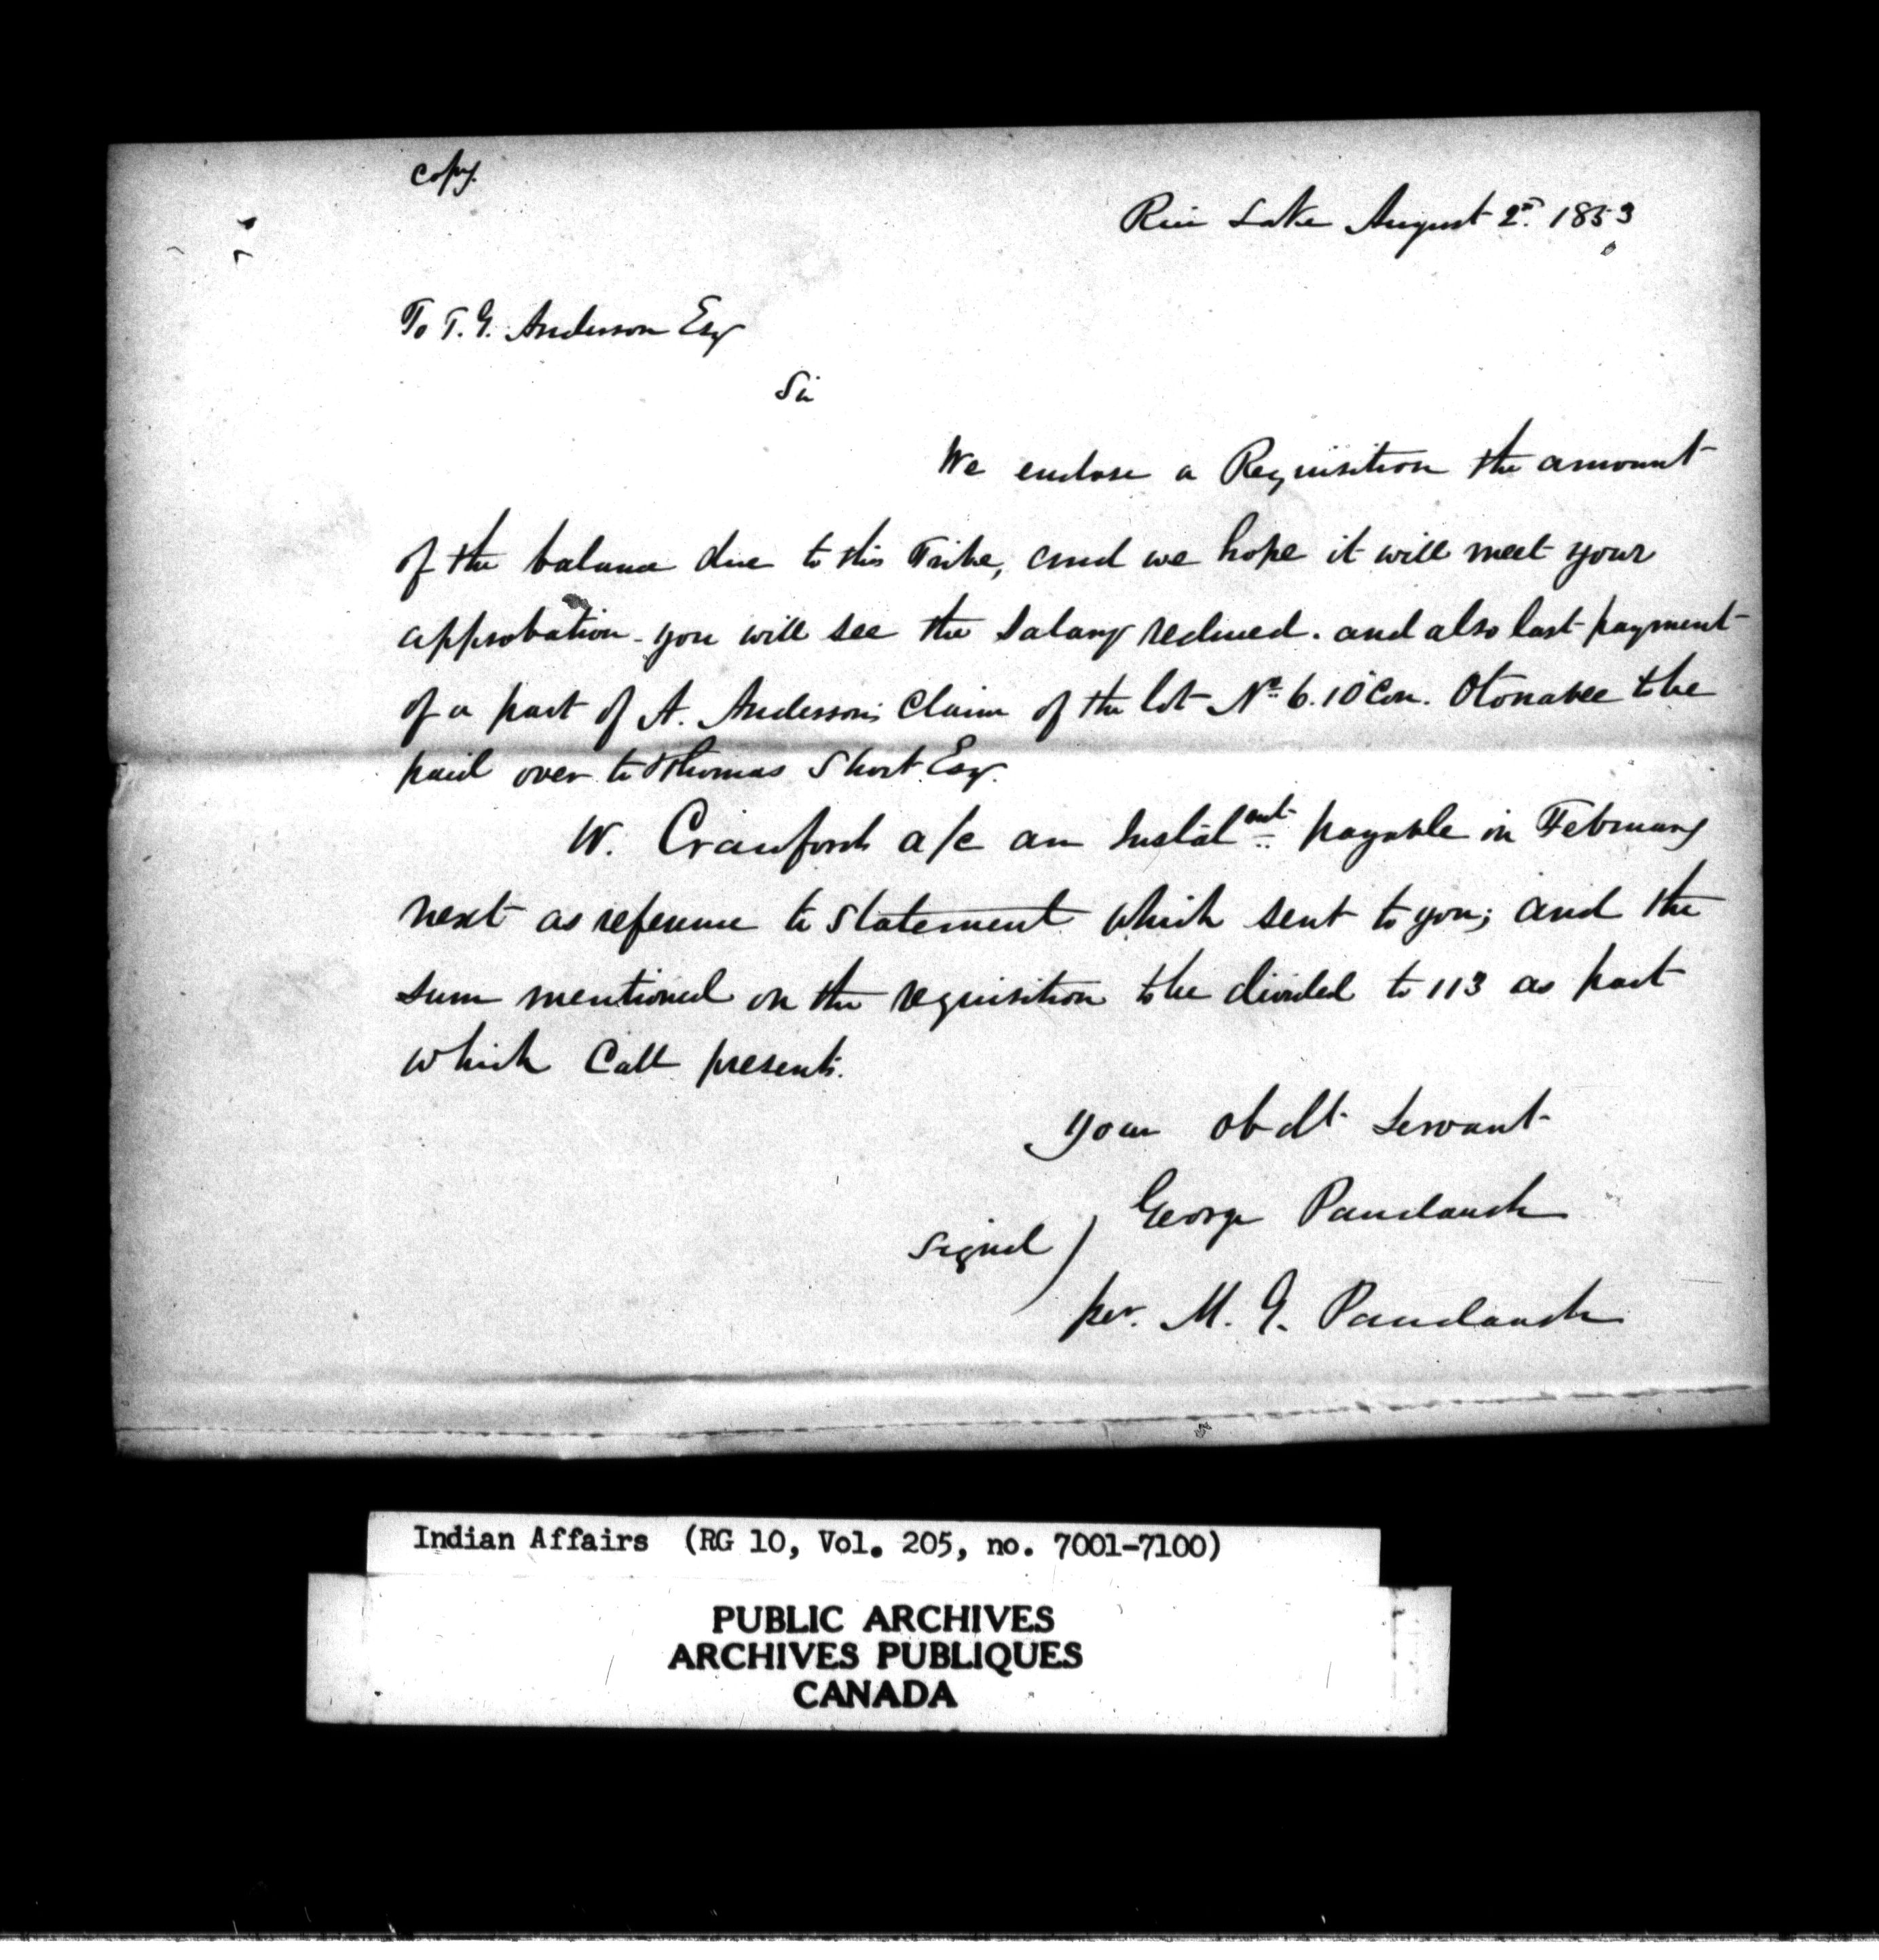 copy.
Rice Lake August 2nd. 1853
To T. G. Anderson Esq
Sir
We enclose a Requisition the amount
of the balance due to this Tribe, and we hope it will meet your
approbation - you will see the Salary reduced. and also last payment
of a part of A. Anderson's Claim of the lot No. 6. 10 Con. Otonabee to be
paid over to Thomas Short Esqr.
W. Crawford a/c an Instalment payable in February
next as reference to statement which sent to you; and the
sum mentioned on the requisition to be divided to 113 as part
which Call presents.
your obdt Servant
George Paudaush
signed )
per. M. G. Paudaush
Indian Affairs (RG 10, Vol. 205, no. 7001-7100)
PUBLIC ARCHIVES
ARCHIVES PUBLIQUES
CANADA